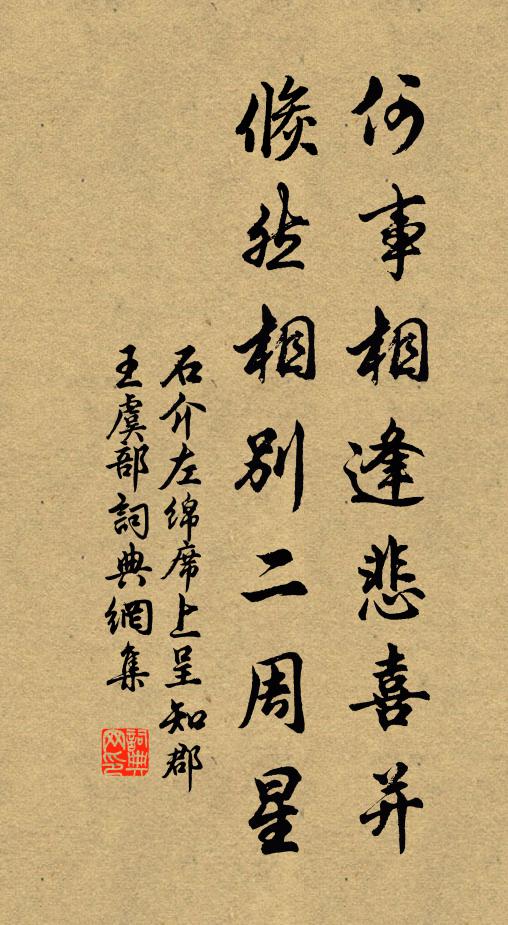 何事相逢悲喜并
倏然相别二周星
石介左绵席上呈知郡
王虞部詞典網集
詞典网印